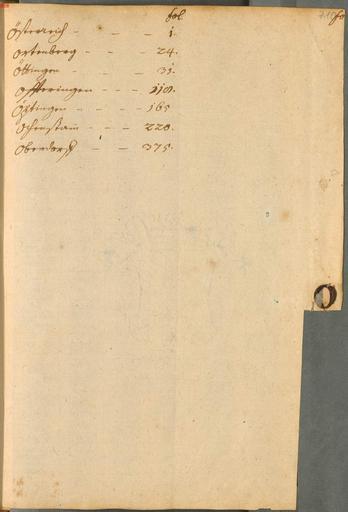 fol.
Österreich - - - 1.
Ortenberg - - - 24.
Öttingen - - - 31.
Offteringen - - - 118.
Öptingen - - - 165
Ochenstain - - - 228.
Oberdorff - - 375.
O